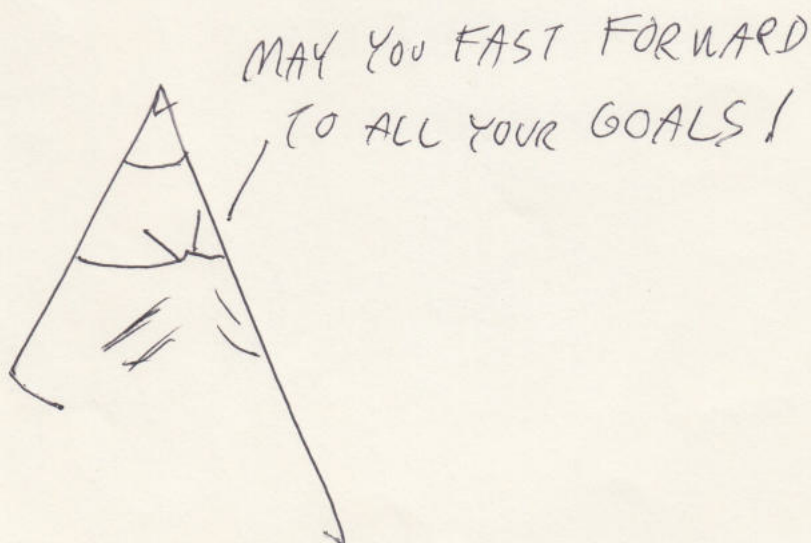 MAY YOU FAST FORWARD
TO ALL YOUR GOALS!